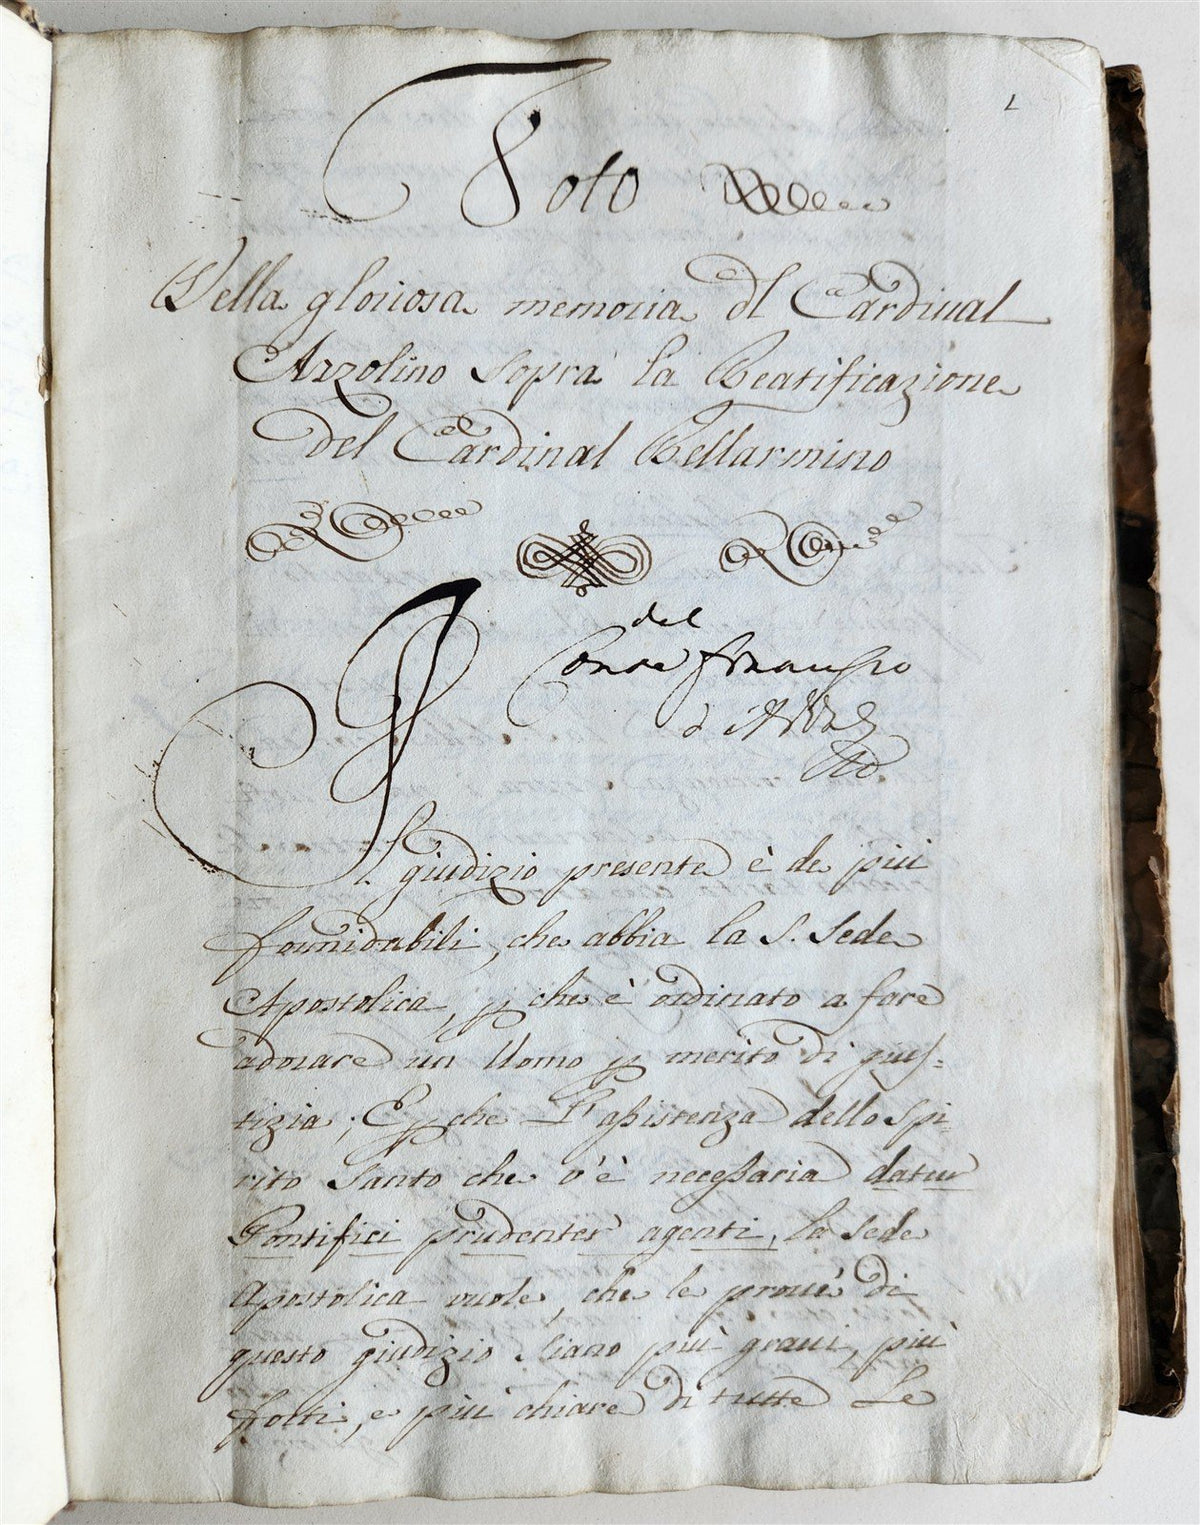 1
Voto
Della gloriosa memoria dl Cardinal
Azzolino sopra la Beatificazione
del Cardinal Bellarmino
del
Conte
Il giudizio presente è de più
formidabili, che abbia la S. Sede
Apostolica, p che è ordinato a fare
adorare un Uomo p merito di gius=
tizia; E p che l'assistenza dello Spi
rito Santo che v'è necessaria datur
Pontifici prudenter agenti, la Sede
Apostolica vuole, che le proue di
questo giudizio siano più graui, più
forti, e più chiare di tutte Le